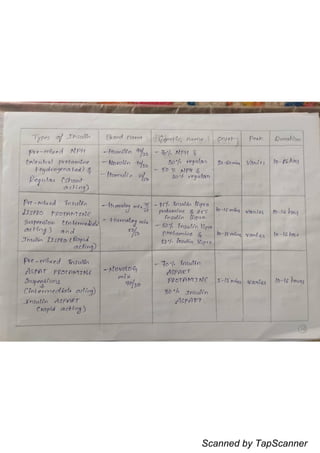 Types of Insulin
Brand name
Generic name
Onset
Peak
Duration
Pre-mixed NPH
Regular (short
acting)
- Humulin 70/30
- Novolin 70/30
- Humulin 50/50
- 70% NPH &
30% regular
- 50% NPH &
50% regular
30-60 mins
varies
10-16 hrs
Pre-mixed Insulin
LISPRO PROTAMINE
Suspension (intermediate
acting) and
Insulin LISPRO (Rapid
acting)
- Humalog mix 75/25
- Humalog mix
50/50
- 75% Insulin lispro
protamine & 25%
Insulin lispro
- 50% Insulin lispro
protamine &
50% Insulin lispro
10-15 mins
varies
10-16 hour
10-15 mins
varies
10-16 hour
Pre-mixed Insulin
ASPART PROTAMINE
Suspensions
(Intermediate acting)
Insulin ASPART
(rapid acting)
- NOVOLOG
mix
70/30
- 70% Insulin
ASPART
PROTAMINE
30% Insulin
ASPART
5-15 mins
varies
10-16 hours
Scanned by TapScanner